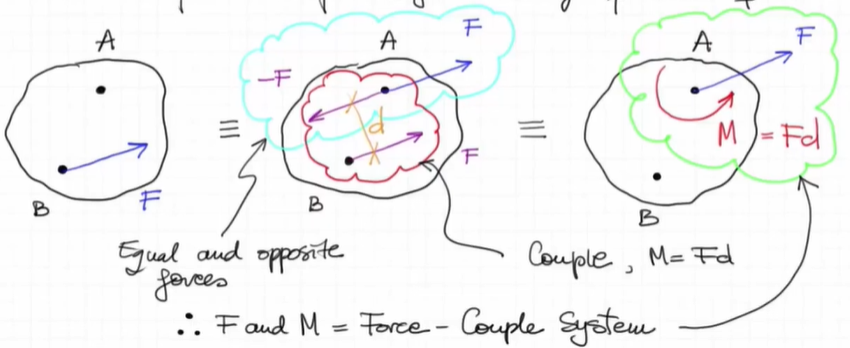 A
F
B
≡
A
F
-F
d
F
B
≡
A
F
M = Fd
B
Equal and opposite
forces
Couple, M = Fd
∴ F and M = Force - Couple System